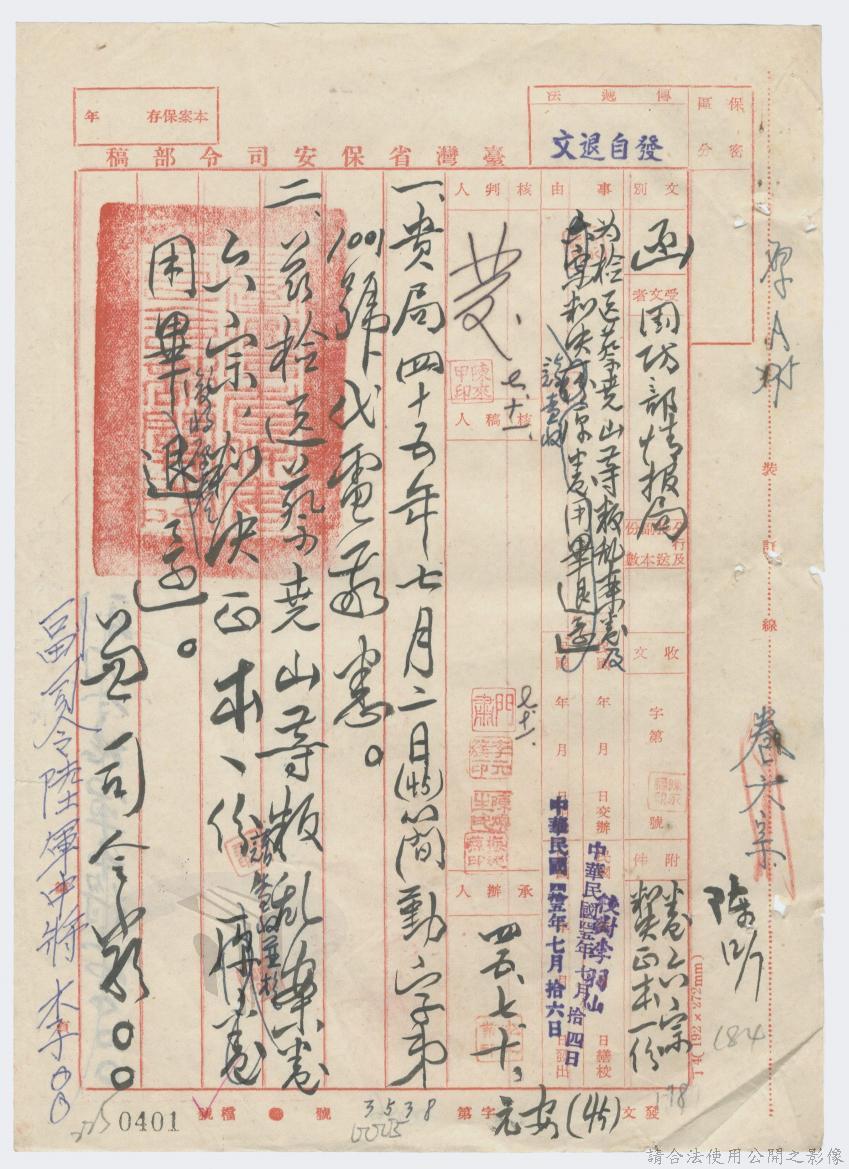 保密區分
傳遞法
發自退文
本案保存 年
臺灣省保安司令部稿
文別
函
受文者
國防部情報局
分行及副本送份數
收文
字第
號
附件
卷六宗
判決正本一份
事由
為檢送蔡堯山等叛亂案卷及
判決
請查收
原卷用畢退還
年 月 日交辦
中華民國四十五年七月拾四日
校對李羽仙
日繕校
年 月
中華民國四十五年七月拾六日
核判人
七.十一.
陳來甲印
核稿人
七.十一.
承辦人
四五.七.十.
一、貴局四十五年七月二日(45)簡勤字第
1001號代電敬悉。
二、茲檢送蔡堯山等叛亂案卷
六宗、判決正本一份
請查收並於
原卷
用畢退還。
兼司令 俞。。
副司令陸軍中將 李
裝
訂
線
卷六宗
184
178
(192×272mm)
發文 (45) 安元 字第 3538 號
0005
檔號
225
0401
請合法使用公開之影像